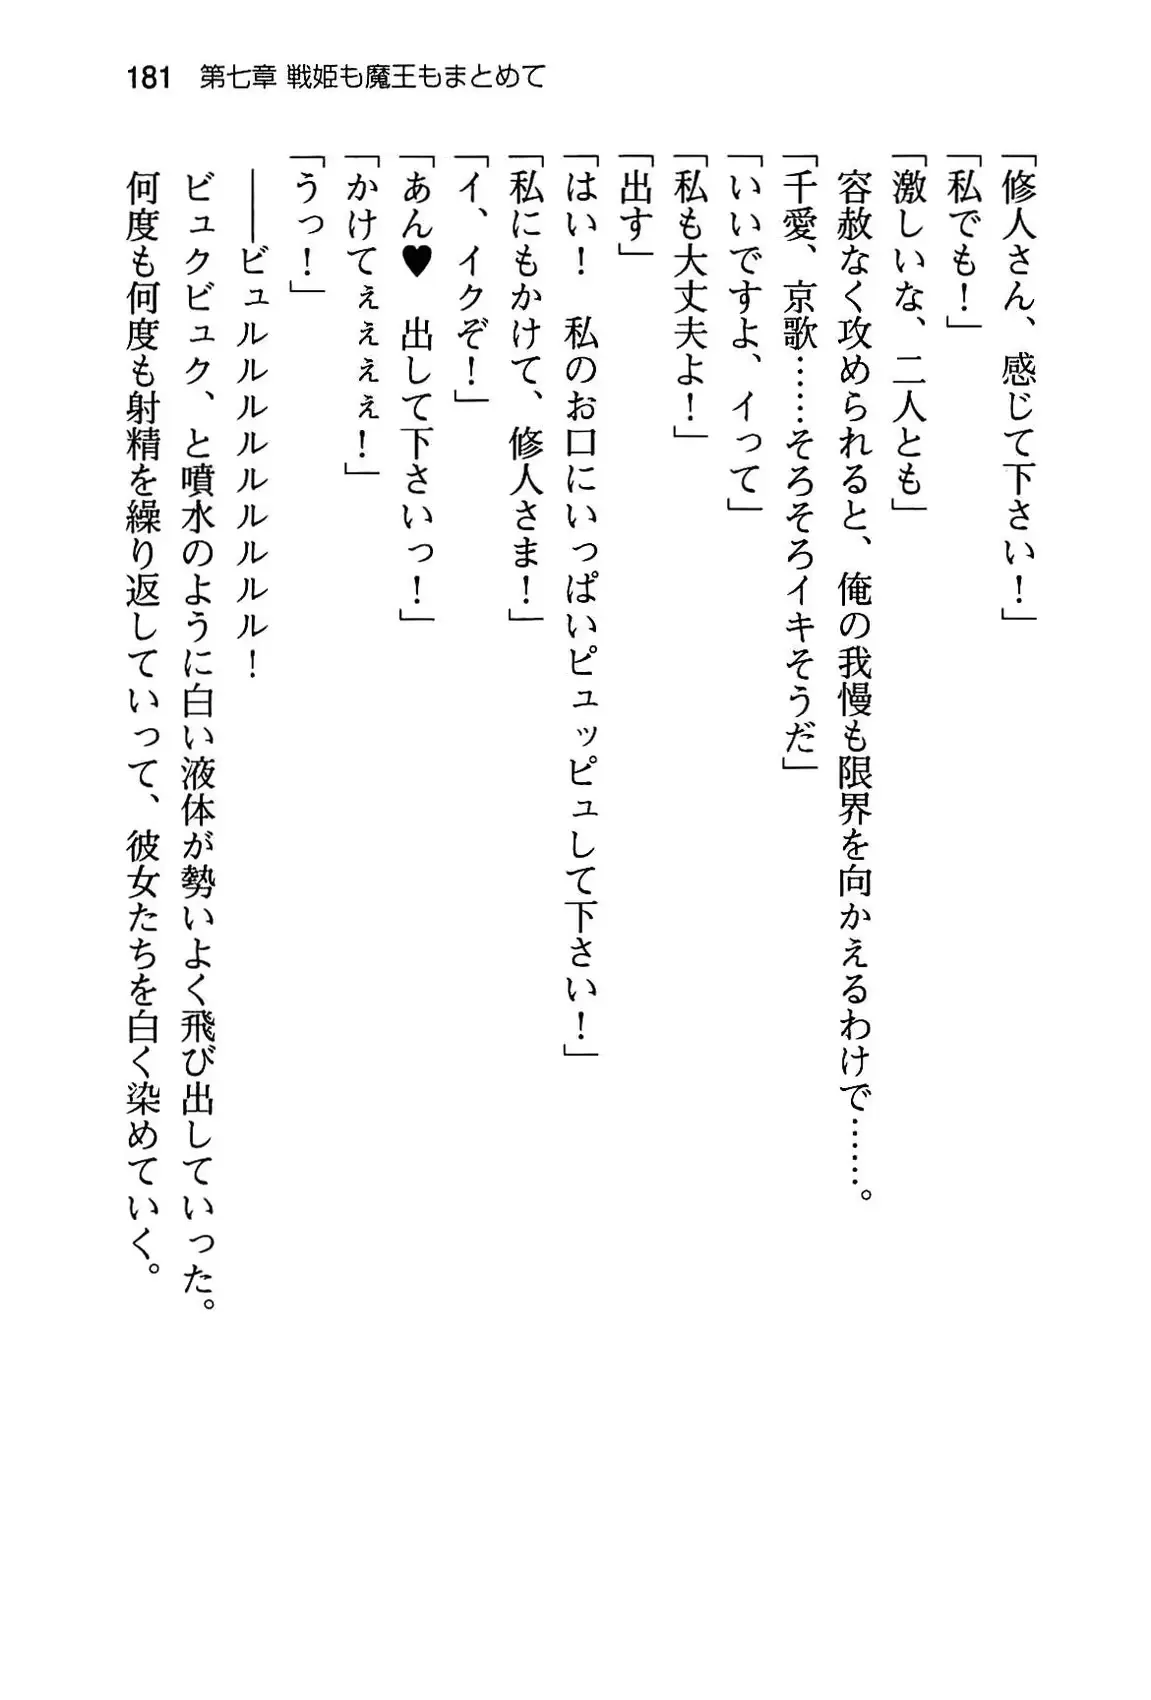 181　第七章 戦姫も魔王もまとめて
「修人さん、感じて下さい！」
「私でも！」
「激しいな、二人とも」
　容赦なく攻められると、俺の我慢も限界を向かえるわけで……。
「千愛、京歌……そろそろイキそうだ」
「いいですよ、イって」
「私も大丈夫よ！」
「出す」
「はい！　私のお口にいっぱいピュッピュして下さい！」
「私にもかけて、修人さま！」
「イ、イクぞ！」
「あん♥　出して下さいっ！」
「かけてぇぇぇぇ！」
「うっ！」
　――ビュルルルルルルルルルル！
　ビュクビュク、と噴水のように白い液体が勢いよく飛び出していった。
　何度も何度も射精を繰り返していって、彼女たちを白く染めていく。